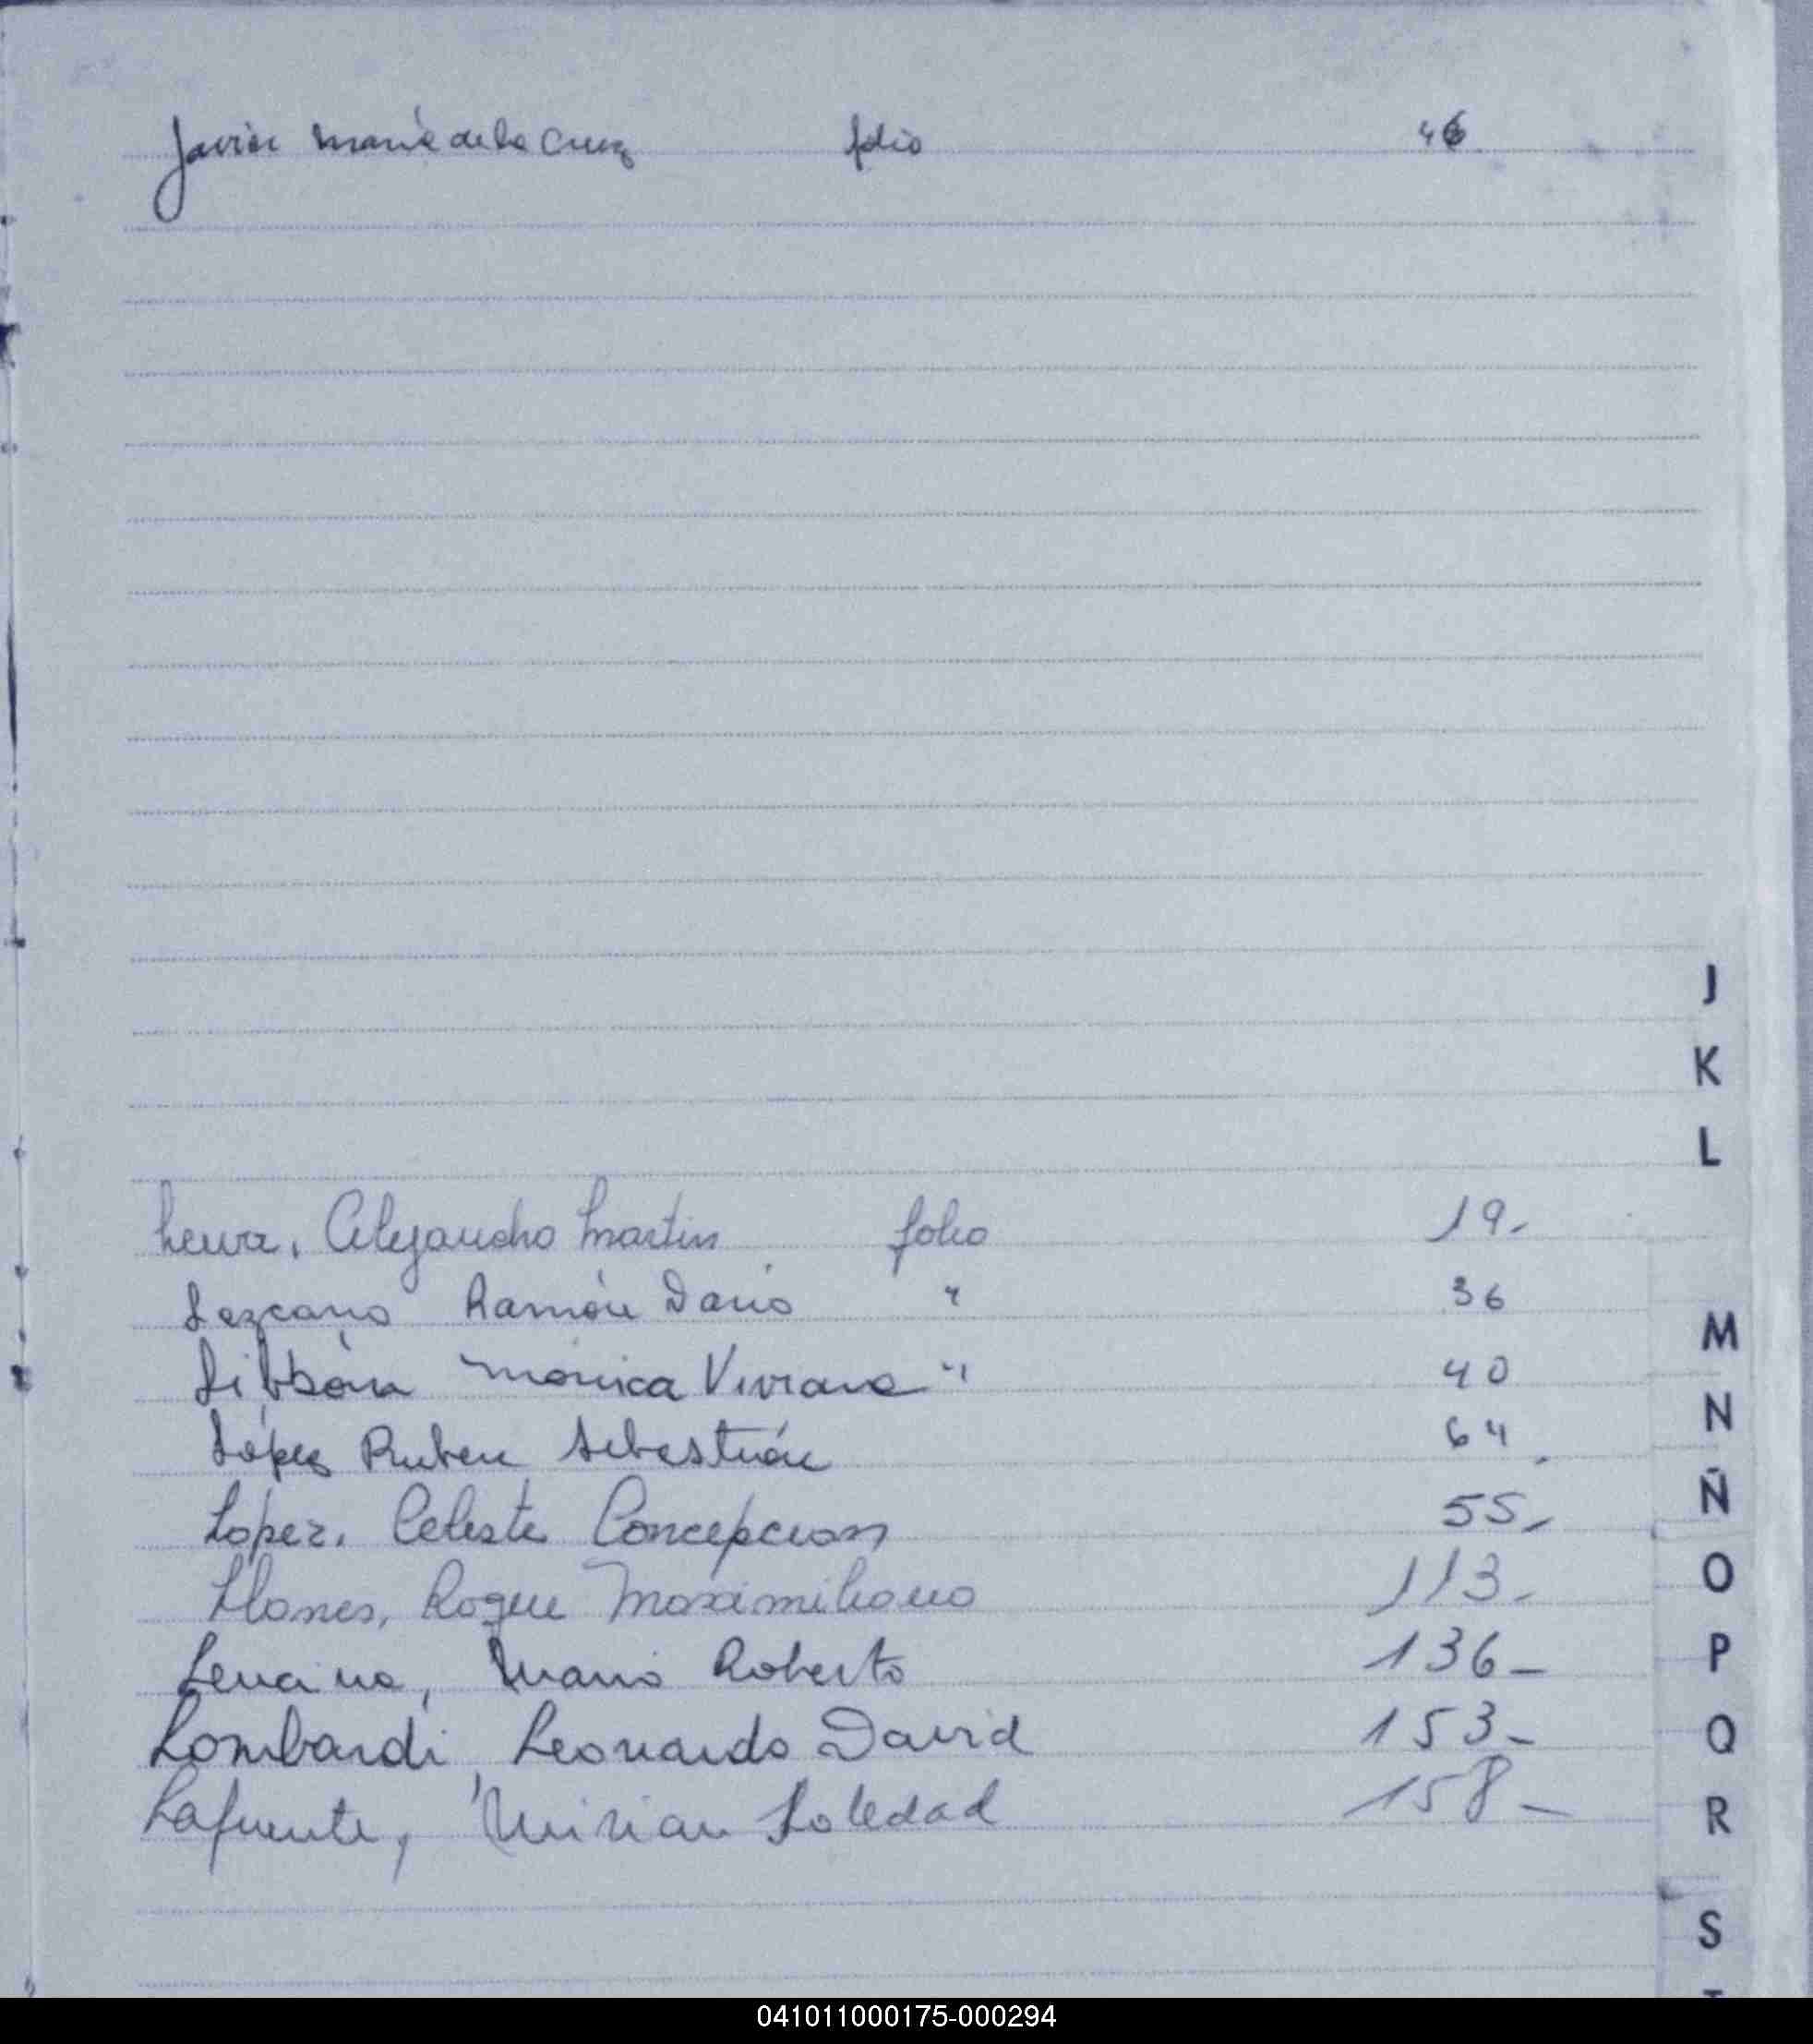 Javier Maria de la Cruz folio 46
J
K
L
Leiva, Alejandro Martin folio 19-
Lezcano Ramón Dario " 36
M
Libbón Mónica Viviana " 40
N
López Ruben Sebastián 64
Ñ
Lopez, Celeste Concepcion 55-
O
Llanes, Roque Maximiliano 113-
P
Mario Roberto 136-
Q
Lombardi, Leonardo David 153-
R
Lafuente, Mirian Soledad 158-
S
041011000175-000294